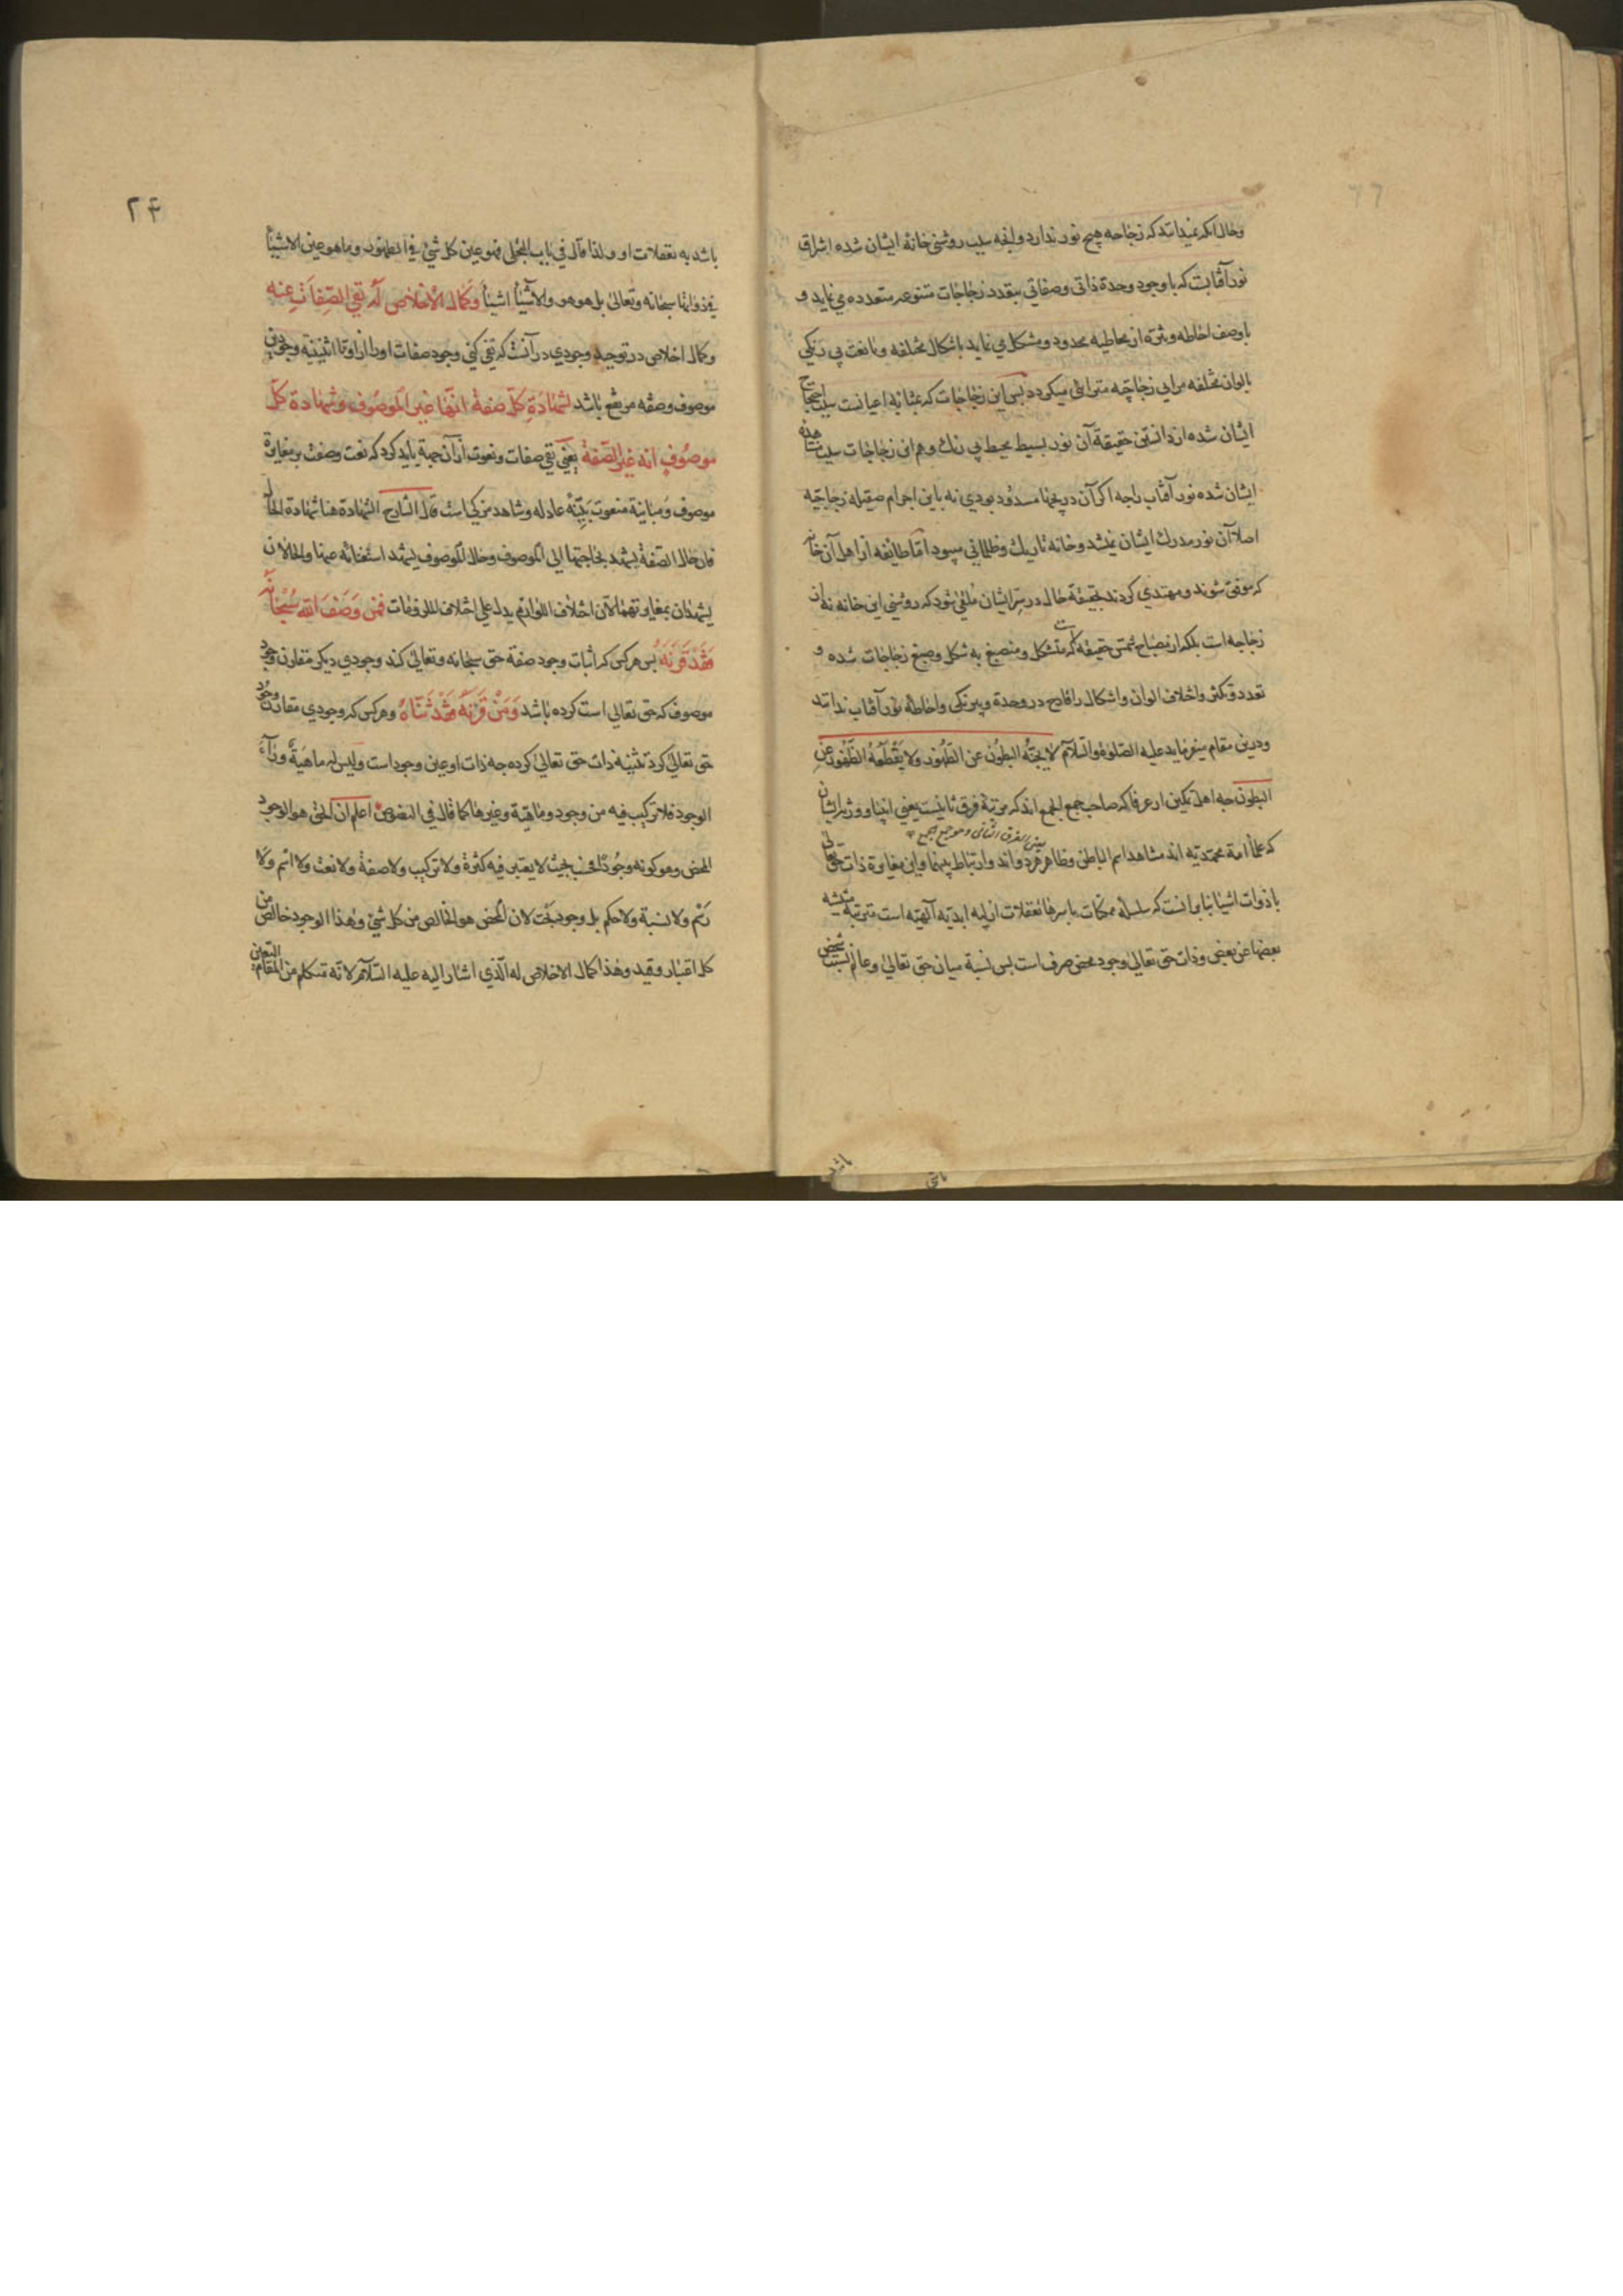 وحال آنکه نمیدانند که زجاجه هیچ نور ندارد و آنچه سبب روشنی خانهٔ ایشان شده اشراق
نور آفتابست که با وجود وحدة ذاتی و صفاتی بتعدد زجاجات متنوعه متعدده می نماید و
با وصف احاطه و تنزه از محاطیه محدود و مشکل می نماید باشکال مختلفه و با نعت بی رنکی
بالوان مختلفه مرایی زجاجیه مترائی میکردد پس این زجاجات که بمثابه اعیانست سبب احتجاب
ایشان شده از دانستن حقیقة آن نور بسیط محیط بی رنک و هم این زجاجات سبب
ایشان شده نور آفتاب را چه اکر آن دریچها مسدود بودی نه باین اجرام صقیله زجاجیه
اصلا آن نور مدرک ایشان نمیشد و خانه تاریک و ظلمانی میبود اما طائفه از اهل آن خانه
که موفق شوند و مهتدی کردند بحقیقة حال در سر ایشان ملقی شود که روشنی این خانه نه از
زجاجه است بلکه از مصباح شمس حقیقه است که متشکل و منصبغ به شکل و صبغ زجاجات شده و
تعدد و تکثر و اختلاف الوان و اشکال را قادح در وحدة و بیرنکی و احاطهٔ نور آفتاب ندانند
و درین مقام میفرماید علیه الصلوة والسلام لا یجنّه البطون عن الظهور ولا یقطعه الظهور عن
البطون چه اهل تمکین از عرفا که صاحب جمع الجمع اند که مرتبهٔ فرق ثانیست یعنی انبیا و ورثه ایشان
یعنی الفرق الثانی و هو جمع الجمع
که علمأ امة محمدیه اند مشاهد اسم الباطن و ظاهر هر دواند و ارتباط بینهما و این مغایرة ذات حق تعالی
با ذوات اشیا بنا بر آنست که سلسلهٔ ممکنات باسرها تعقلات ازلیه ابدیه آلهیه است مترتبه
بعضها عن بعض و ذات حق تعالی وجود محض صرف است پس نسبة میان حق تعالی و عالم نسبت شخص
۲۴
باشد به تعقلات او و لذا قال فی باب التجلی فهو عین کل شیء فی الظهور و ما هو عین الاشیأ
فی ذواتها سبحانه وتعالی بل هو هو والاشیأ اشیأ وکمال الاخلاص له نفی الصفات عنه
و کمال اخلاص در توحید وجودی در آنست که نفی کنی وجود صفات او را از او تا اثنینیة وجودین
موصوف و صفه مرتفع باشد لشهادة کل صفة انها غیر الموصوف وشهادة کل
موصوف انه غیر الصفة یعنی نفی صفات و نعوت از آن جهة باید کرد که نعت وصفت بر مغایرة
موصوف و مباینة منعوت بیّنهٔ عادله و شاهد مزکی است قال الشارح الشهادة هنا شهادة الحال
فان حال الصفة یشهد بحاجتها الی الموصوف وحال الموصوف یشهد استغنائه عنها والحالان
یشهدان بمغایرتهما لان اختلاف اللوازم یدل علی اختلاف الملزومات فمن وصف الله سبحانه
فقد قرنه پس هر کس که اثبات وجود صفة حق سبحانه و تعالی کند وجودی دیکر مقارن وجود
موصوف که حق تعالی است کرده باشد ومن قرنه فقد ثنّاه و هر کس که وجودی مقارن وجود
حق تعالی کرد تثنیه ذات حق تعالی کرده چه ذات او عین وجود است ولیس له ماهیة ورآء
الوجود فلا ترکیب فیه من وجود وماهیة وغیرها کما قال فی النصوص اعلم ان الحق هو الوجود
المحض وهو کونه وجودًا فحسب بحیث لا یعتبر فیه کثرة ولا ترکیب ولا صفة ولا نعت ولا اسم ولا
رسم ولا نسبة ولا حکم بل وجود بحت لان المحض هو الخالص من کل شیء وهذا الوجود خالص من
کل اعتبار وقید وهذا کمال الاخلاص له الذی اشار الیه علیه السلام لانه تتکلم من المقام